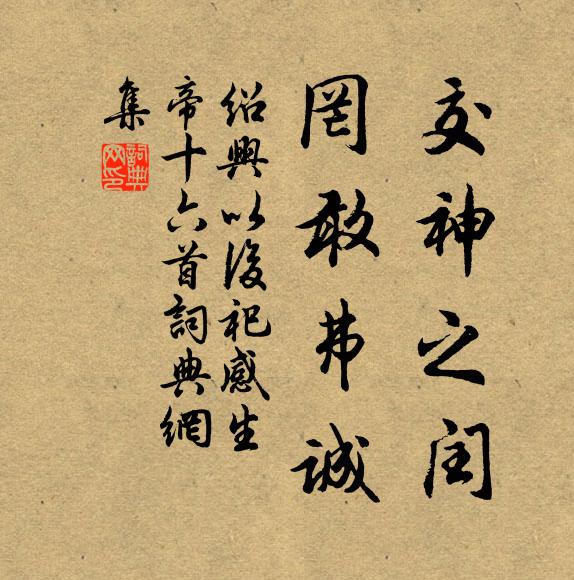 交神之闰
罔敢弗诚
绍興以後祀感生
帝十六首詞典網
集
詞典
网印